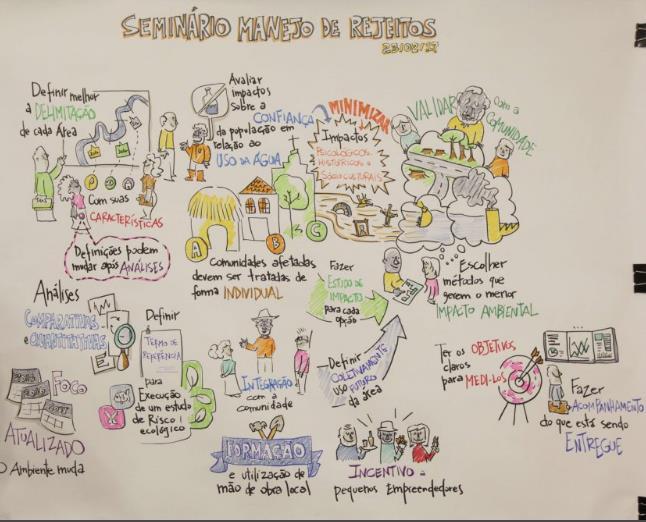 SEMINÁRIO MANEJO DE REJEITOS
Definir melhor
a DELIMITAÇÃO
de cada Área
Com suas
CARACTERÍSTICAS
Definições podem
mudar após ANÁLISES
Avaliar
impactos
sobre a
CONFIANÇA
da população em
relação ao
USO DA ÁGUA
A
B
C
Comunidades afetadas
devem ser tratadas de
forma INDIVIDUAL
MINIMIZAR
Impactos
PSICOLÓGICOS,
HISTÓRICOS e
SÓCIOCULTURAIS
VALIDAR
com a
COMUNIDADE
Escolher
métodos que
gerem o menor
IMPACTO AMBIENTAL
Fazer
ESTUDO DE
IMPACTO
para cada
opção
Definir
COLETIVAMENTE
USO FUTURO
da área
Análises
COMPARATIVAS
e QUANTITATIVAS
FOCO
ATUALIZADO
O Ambiente muda
Definir
TERMO DE
REFERÊNCIA
para
Execução
de um estudo
de Risco
ecológico
INTEGRAÇÃO
com a
comunidade
FORMAÇÃO
e utilização de
mão de obra local
INCENTIVO a
pequenos Empreendedores
Ter os OBJETIVOS
claros
para MEDI-LOS
Fazer
ACOMPANHAMENTO
do que está sendo
ENTREGUE